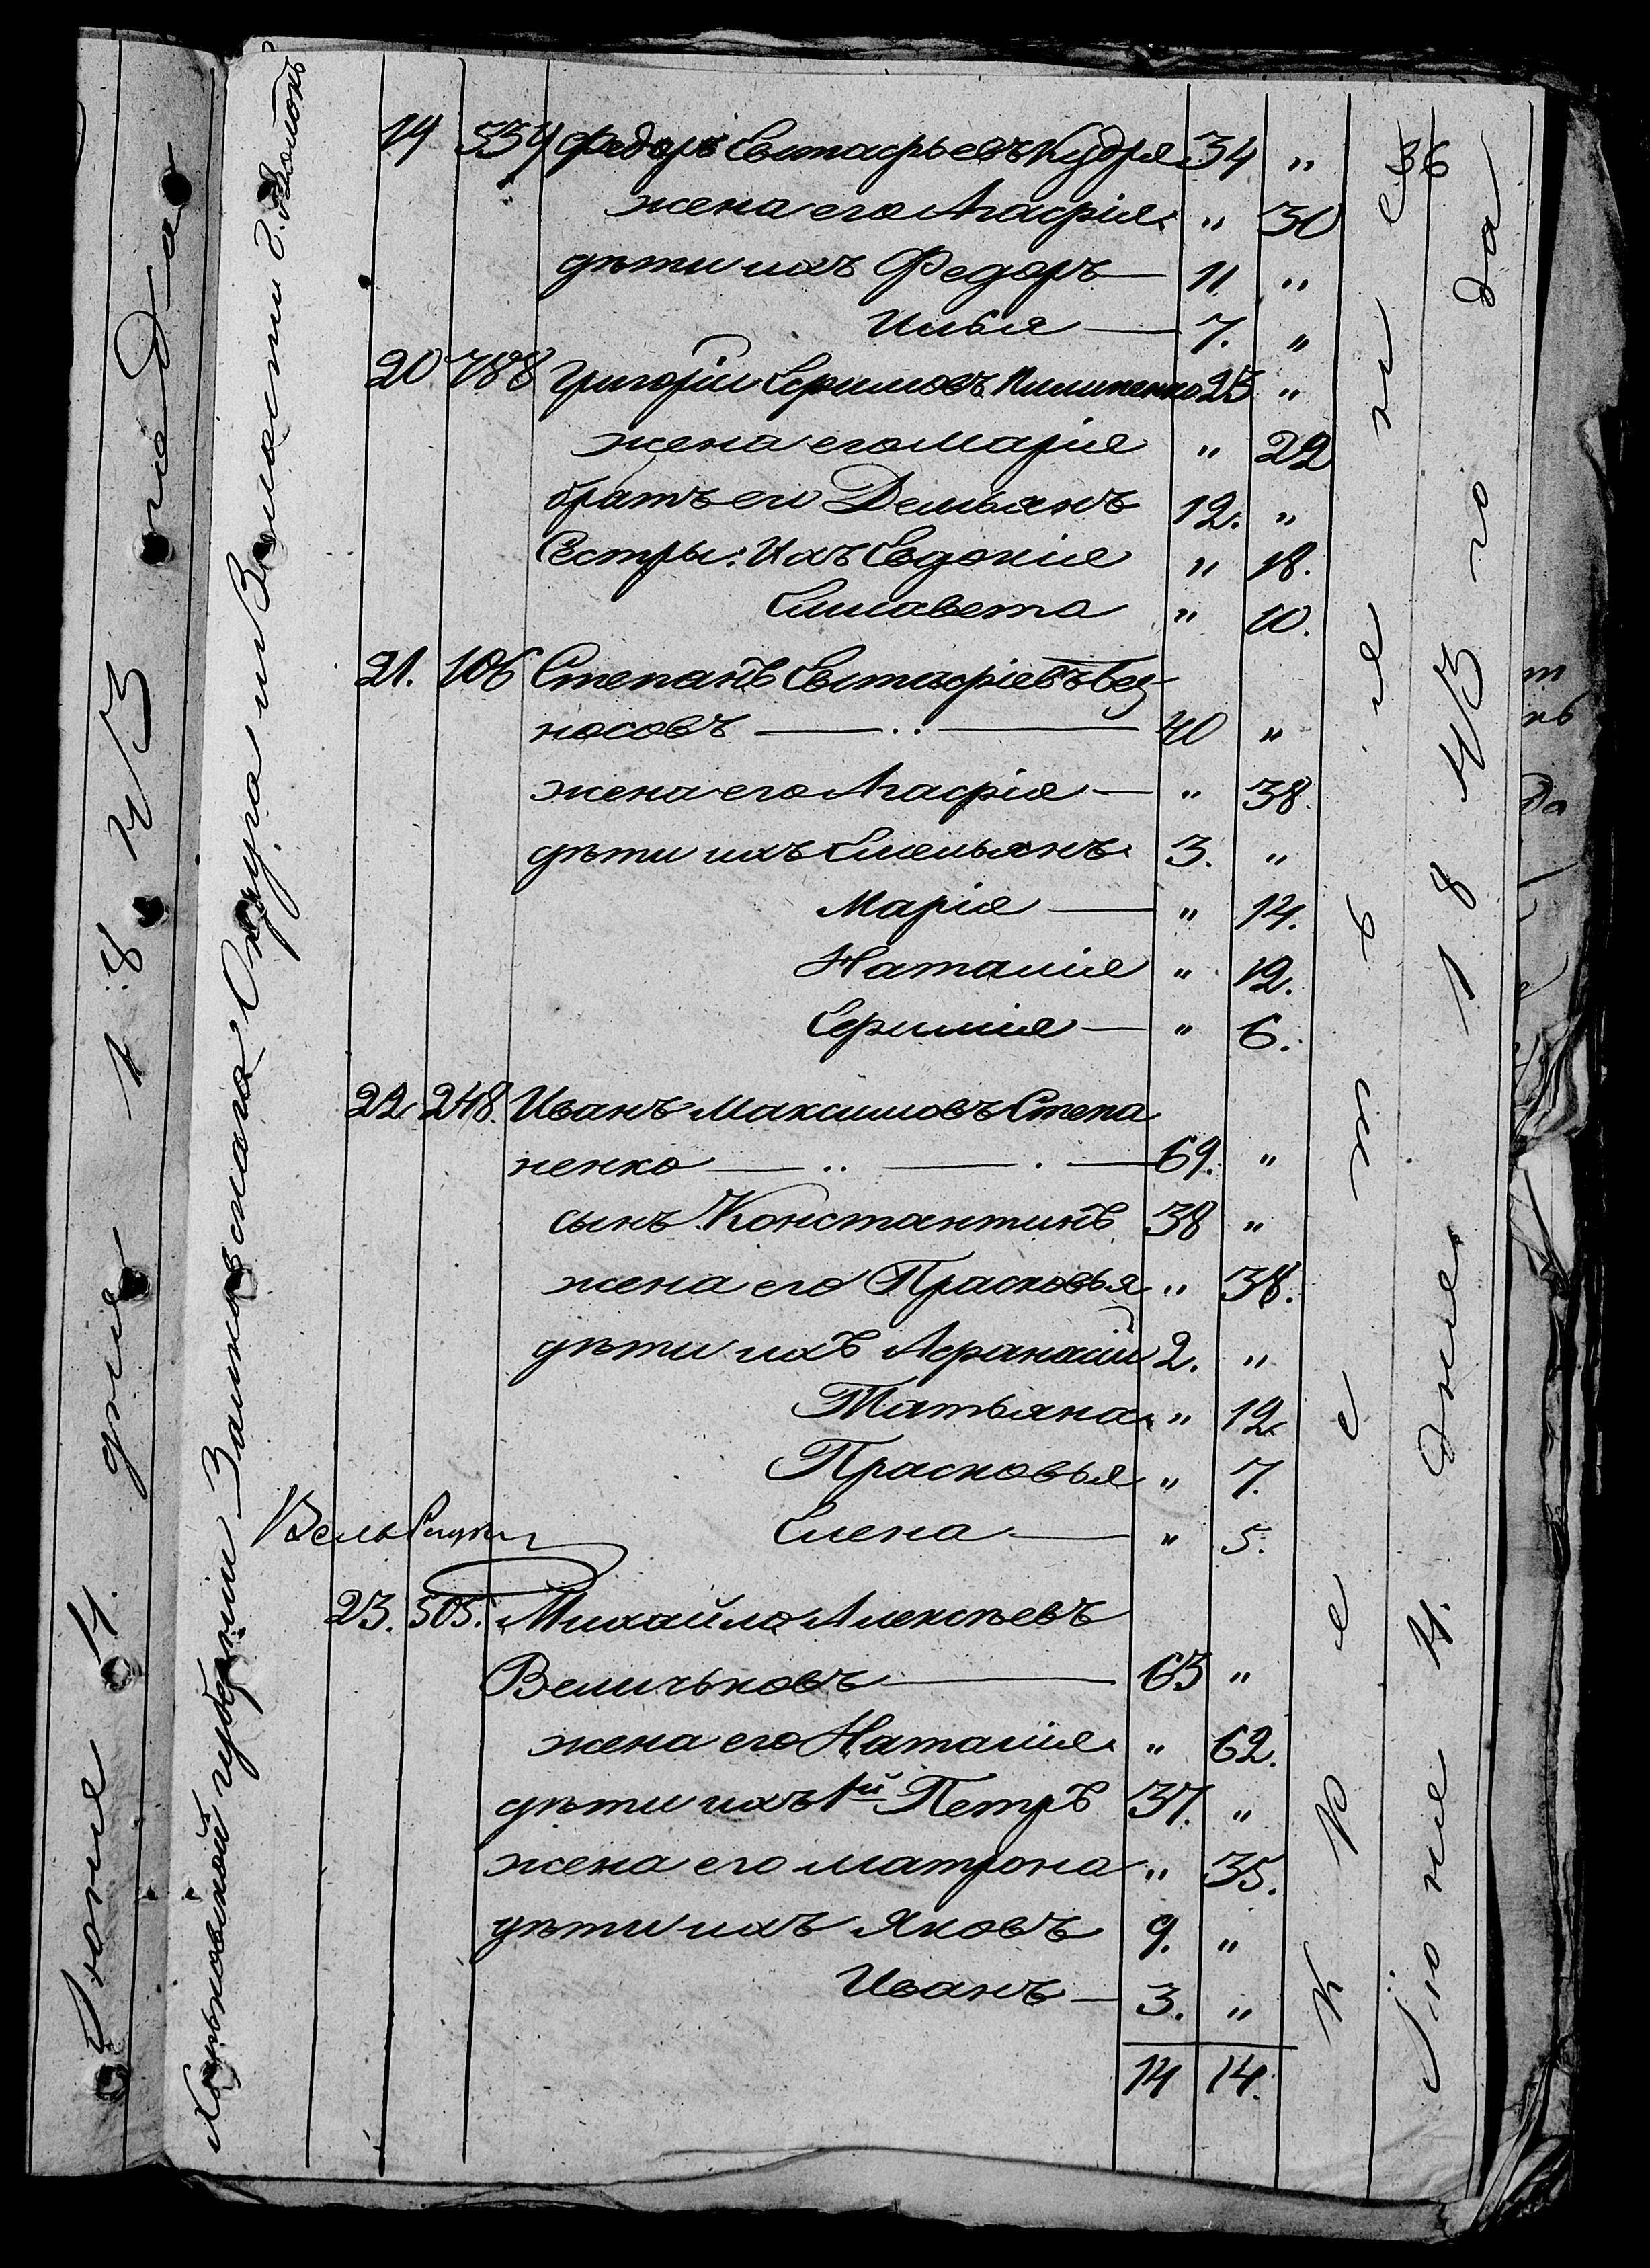 36
19 554 Федоръ Евстафьевъ Кудря 34 "
жена его Агафія " 30
дѣти ихъ Федоръ — 11 "
Илья — 7. "
20 788 Григорій Ефимовъ Пилипенко 23 "
жена его Марія " 22
братъ его Демьянъ 12. "
Сестры: Ихъ Евдокія " 18.
Елисавета " 10.
21. 106 Степанъ Евстафіевъ Без
носовъ — 40 "
жена его Агафія — " 38.
дѣти ихъ Емельянъ 3. "
Марія — " 14.
Наталія " 12.
Ефимія — " 6.
22 248. Иванъ Максимовъ Степа
ненко — 69. "
сынъ Константинъ 38 "
жена его Прасковья " 38.
дѣти ихъ Афанасій 2. "
Татьяна " 12.
Прасковья " 7.
Елена — " 5.
23. 505. Михайло Алексѣевъ
Величьковъ — 63 "
жена его Наталія " 62.
дѣти ихъ 1й Петръ 37. "
жена его Матрона " 35.
дѣти ихъ Яковъ 9. "
Иванъ — 3. "
14 14.
Харьковской губерніи Зміевскаго Округа и Волости
Іюня 4. дня 1843 года
Іюня 4. дня 1843 года